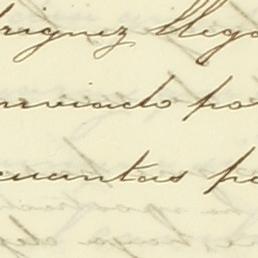 driguez llega
enviado po
cuantas pe